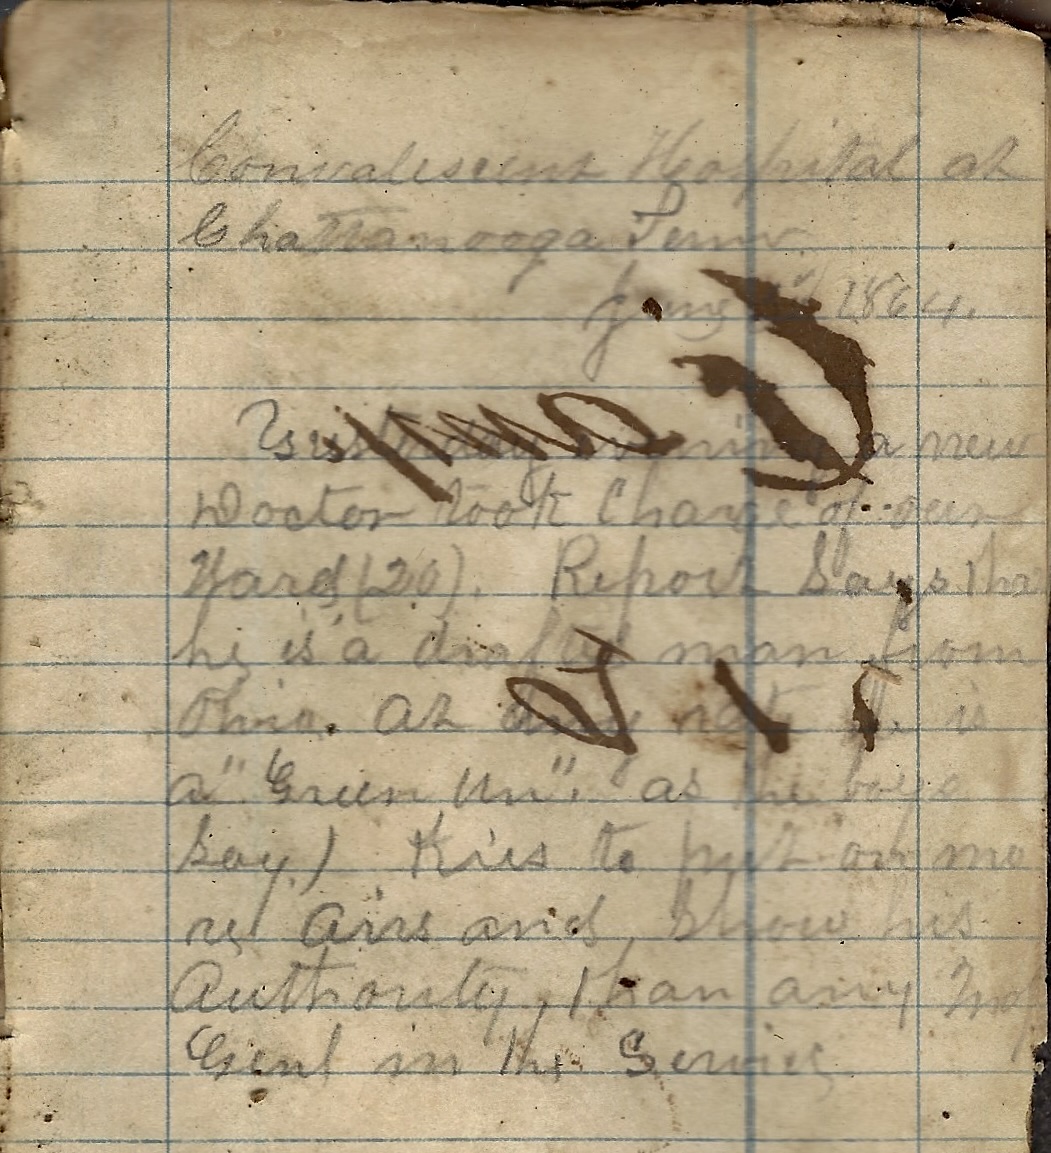 Convalescent Hospital at
Chattanooga Tenn.
June 1864.
Yesterday evening a new
Doctor took Charge of our
Ward (20). Report Says tha
he is a drafted man from
Ohio. At any rate is
a "Green Un", as the boys
Say.) tries to put on mo
re Airs and, Show his
Authority, than any
Genl in the Service